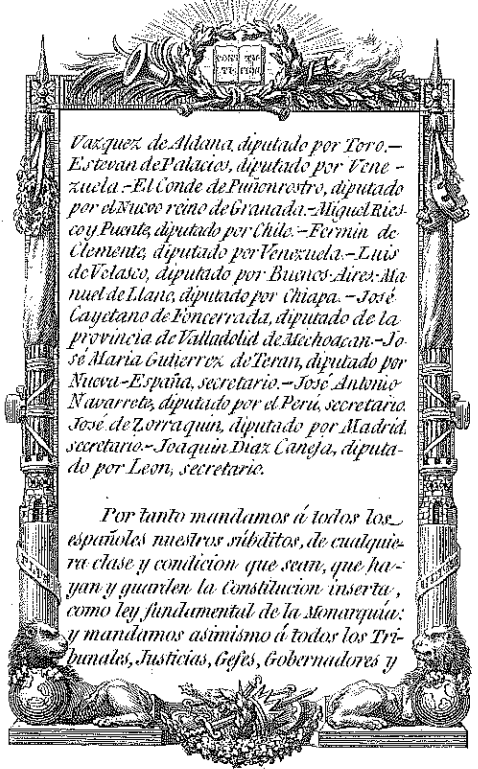 CONS TU
TI CION
Vazquez de Aldana, diputado por Toro.—
Estevan de Palacios, diputado por Vene-
zuela.—El Conde de Puñonrostro, diputado
por el Nuevo reino de Granada.—Miguel Ries-
co y Puente, diputado por Chile.—Fermin de
Clemente, diputado por Venezuela.—Luis
de Velasco, diputado por Buenos-Aires.—Ma
nuel de Llano, diputado por Chiapa.—José
Cayetano de Foncerrada, diputado de la
provincia de Valladolid de Mechoacan.—Jo-
sé Maria Gutierrez de Teran, diputado por
Nueva-España, secretario.—José Antonio
Navarrete, diputado por el Perú, secretario.
José de Zorraquin, diputado por Madrid,
secretario.—Joaquin Diaz Caneja, diputa-
do por Leon, secretario.
Por tanto mandamos á todos los
españoles nuestros súbditos, de cualquie-
ra clase y condicion que sean, que ha-
yan y guarden la Constitucion inserta,
como ley fundamental de la Monarquía:
y mandamos asimismo á todos los Tri-
bunales, Justicias, Gefes, Gobernadores y